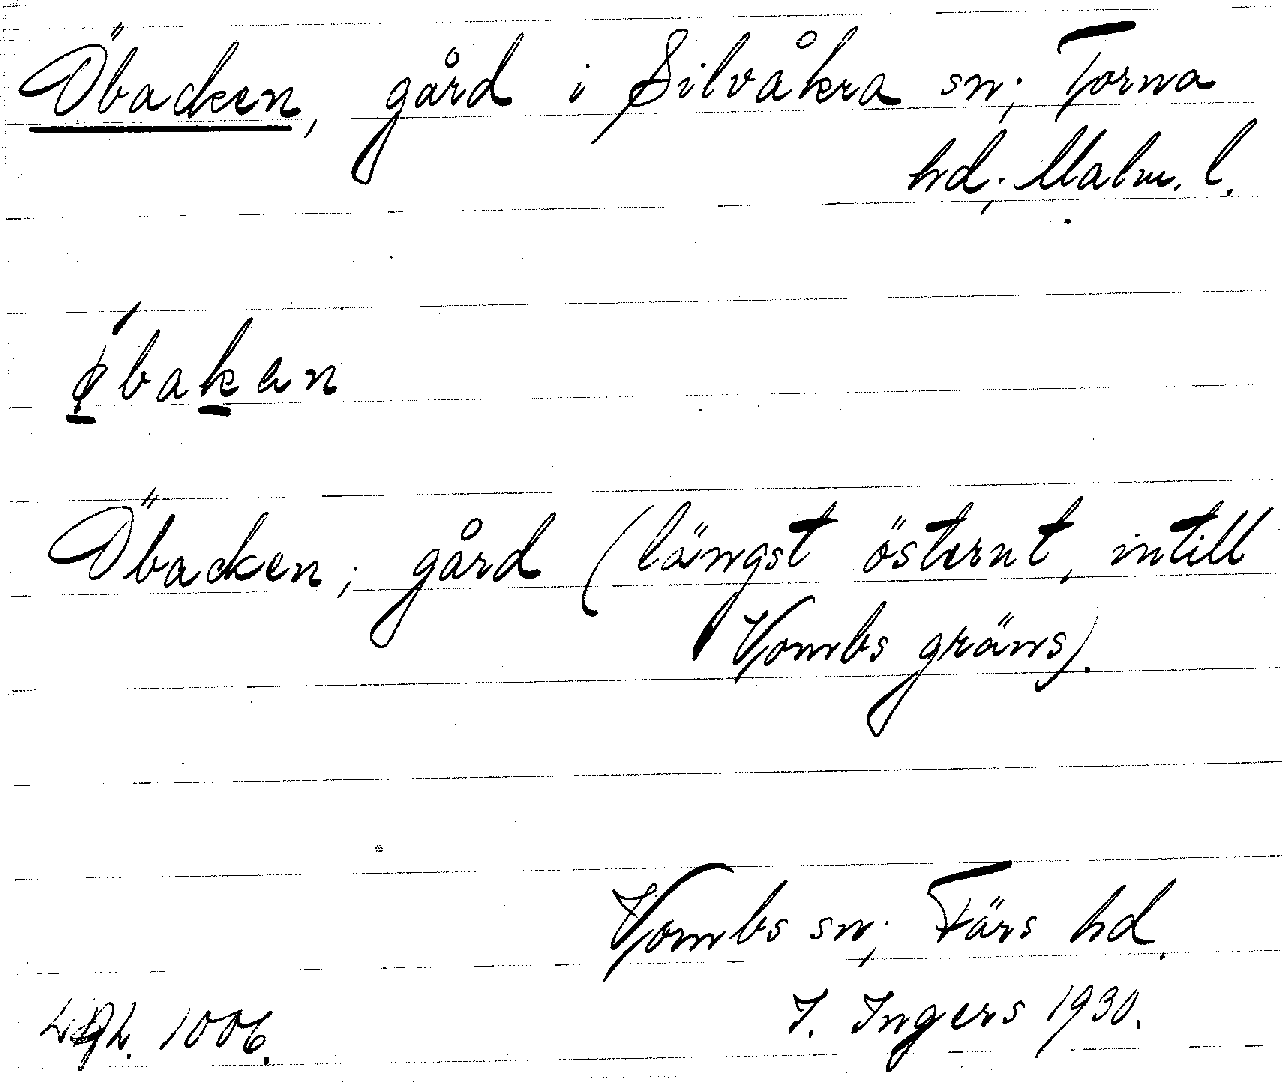 Öbacken, gård i Silvåkra sn; Torna
hd; Malm. l.
ǿbakan
Öbacken; gård (längst österut, intill
Vombs gräns).
Vombs sn; Färs hd.
1006. I. Ingers 1930.